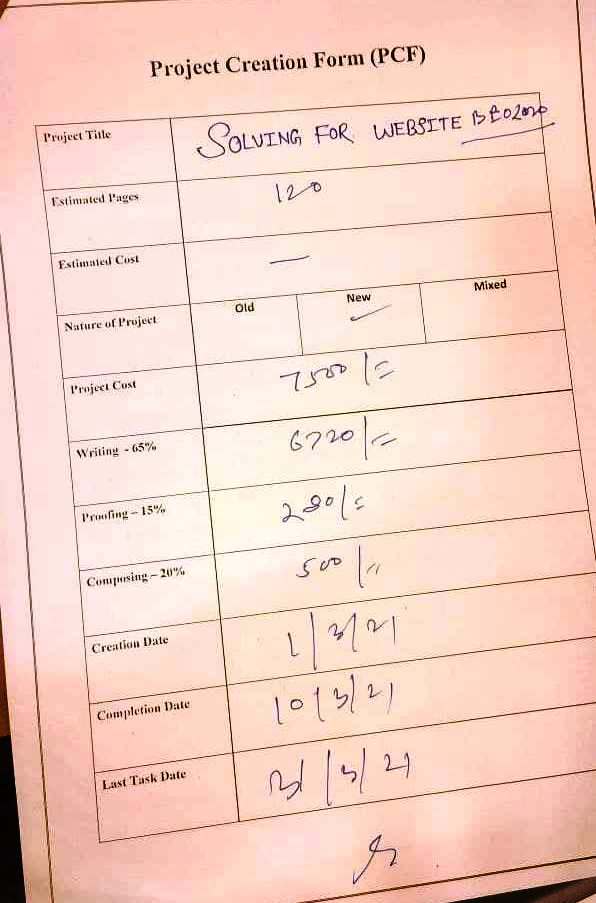 Project Creation Form (PCF)
Project Title SOLVING FOR WEBSITE
Estimated Pages 120
Estimated Cost —
Nature of Project Old New ✓ Mixed
Project Cost 7500/=
Writing - 65% 6720/=
Proofing – 15% 280/=
Composing – 20% 500/=
Creation Date 1/3/21
Completion Date 10/3/21
Last Task Date /3/21